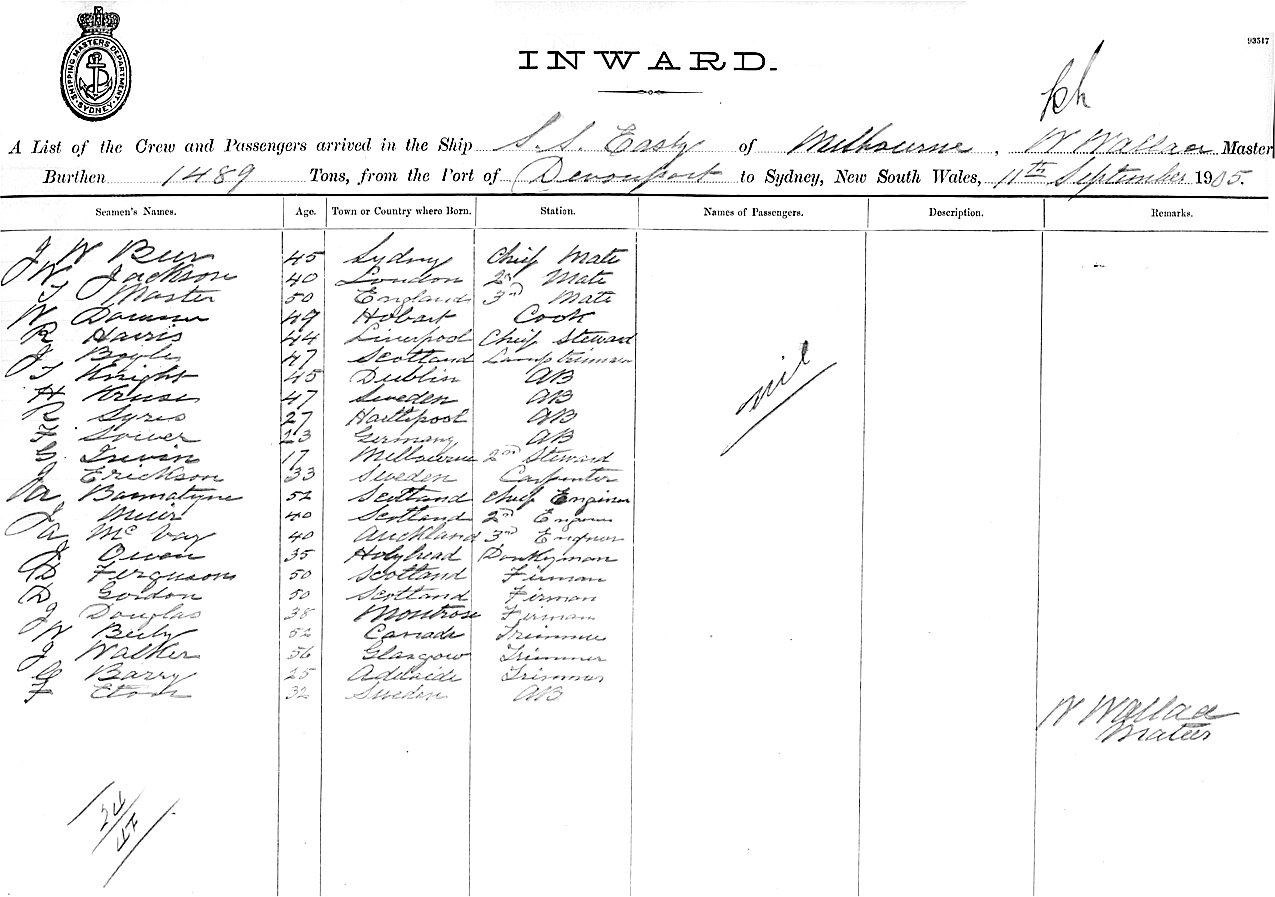 93517
SHIPPING MASTERS DEPARTMENT SYDNEY
INWARD.
A List of the Crew and Passengers arrived in the Ship S.S. Easby of Melbourne, W Wallace Master
Burthen 1489 Tons, from the Port of Devonport to Sydney, New South Wales, 11th September 1905.
Seamen's Names. Age. Town or Country where Born. Station. Names of Passengers. Description. Remarks.
J W 45 Sydney Chief Mate
W Jackson 40 London 2nd Mate
T Master 50 England 3rd Mate
W 49 Hobart Cook
R Harris 44 Liverpool Chief Steward
J Boyle 47 Scotland Lamptrimmer
T Knight 45 Dublin AB
H Kruse 47 Sweden AB
R Syres 27 Hartlepool AB
Sower 23 Germany AB
Irwin 17 Melbourne 2nd Steward
J Erickson 33 Sweden Carpenter
Bannatyne 52 Scotland Chief Engineer
J Muir 40 Scotland 2nd Engineer
A McVay 40 Auckland 3rd Engineer
Owen 35 Holyhead Donkeyman
D Fergusson 50 Scotland Firman
D Gordon 50 Scotland Firman
J Douglas 38 Montrose Firman
W 52 Canada Trimmer
J Walker 56 Glasgow Trimmer
G Barry 25 Adelaide Trimmer
F 32 Sweden AB
nil
W Wallace
Master
24